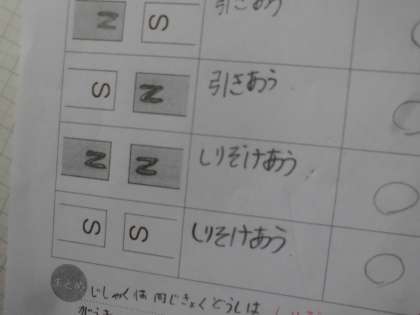 N S 引きあう
S N 引きあう
N N しりぞけあう
S S しりぞけあう
まとめ
じしゃくは同じきょくどうしは